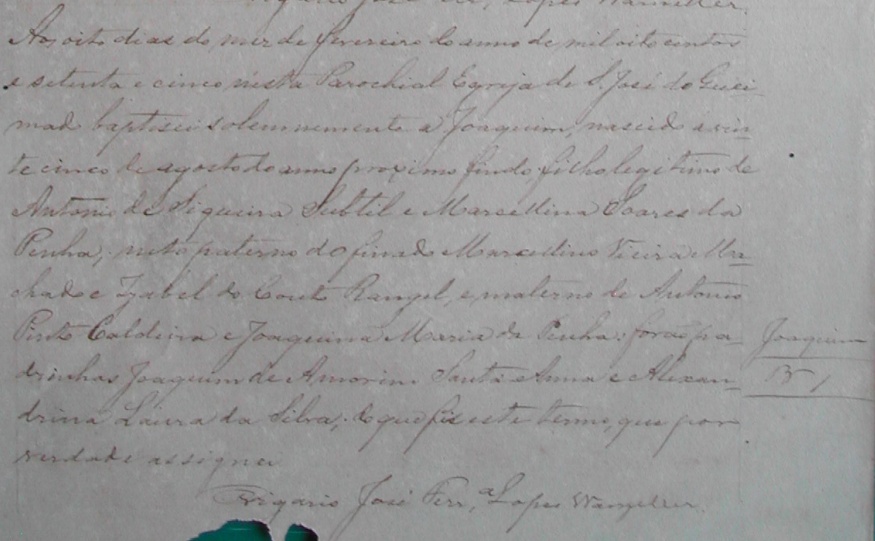 Vigario José Lopes Wanzeller.
Aos oito dias do mez de fevereiro do anno de mil oito centos
e setenta e cinco nésta Parochial Egreja de S. José do Quei
mado baptisei solemnemente a Joaquim, nascido a vin
te cinco de agosto do anno proximo findo, filho legitimo de
Antonio de Siqueira Subtil e Marcellina Soares da
Penha; neto paterno do finado Marcellino Vieira Ma
chado e Izabel do Couto Rangel, e materno de Antonio
Pinto Caldeira e Joaquina Maria da Penha: forão pa
drinhos Joaquim de Amorim Santa Anna e Alexan
drina Laura da Silva; do que fis este termo, que por
verdade assignei
Vigario José Ferr.ª Lopes Wanzeller.
Joaquim